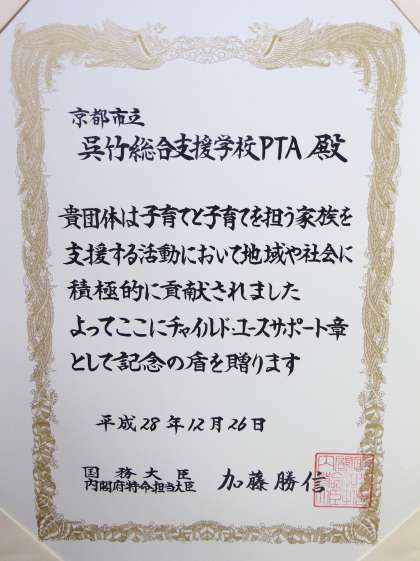 京都市立
呉竹総合支援学校PTA 殿
貴団体は子育てと子育てを担う家族を
支援する活動において地域や社会に
積極的に貢献されました
よってここにチャイルド・ユースサポート章
として記念の盾を贈ります
平成28年12月26日
国務大臣
内閣府特命担当大臣
加藤勝信